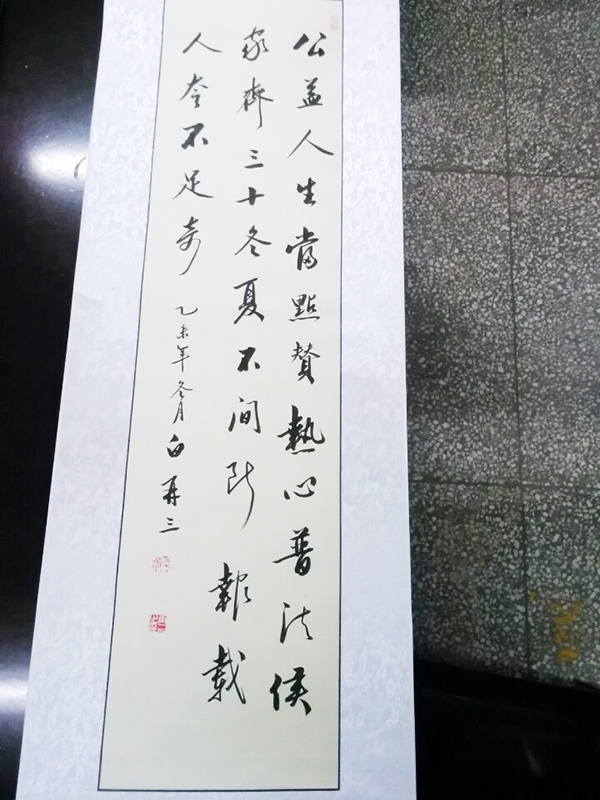 公益人生當點贊熱心普法侯
家齊三十冬夏不間斷報載
人奇不足奇
乙未年冬月白再三